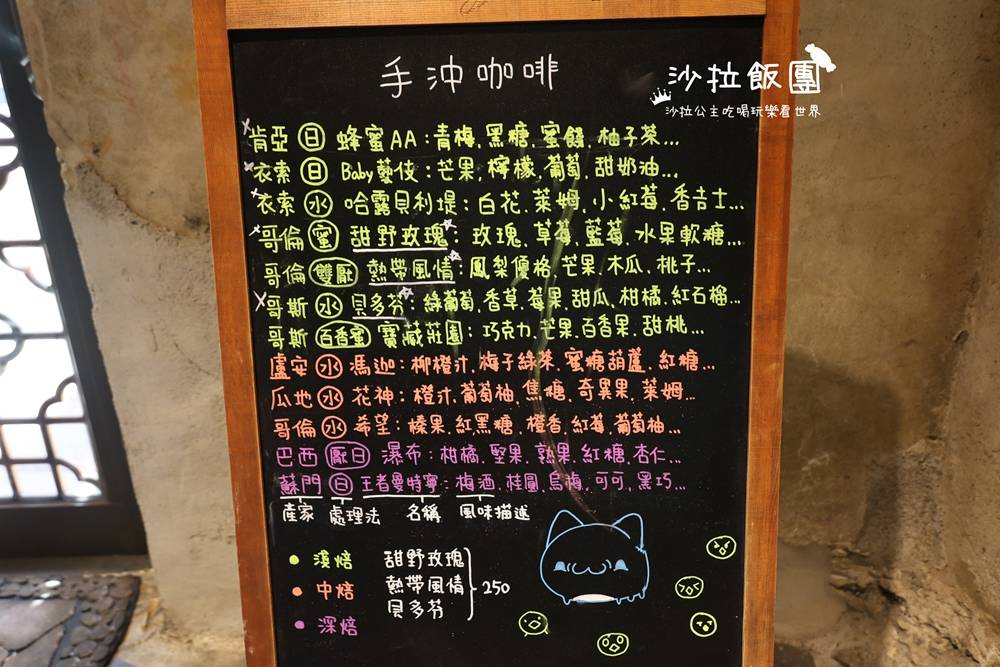 手沖咖啡
沙拉飯團
沙拉公主吃喝玩樂看世界
肯亞 日 蜂蜜AA:青梅,黑糖,蜜餞,柚子茶...
衣索 日 Baby藝伎:芒果,檸檬,葡萄,甜奶油...
衣索 水 哈露貝利堤:白花.萊姆.小紅莓.香吉士...
哥倫 蜜 甜野玫瑰:玫瑰.草莓.藍莓.水果軟糖...
哥倫 雙厭 熱帶風情:鳳梨優格.芒果.木瓜.桃子...
哥斯 水 貝多芬:綠葡萄.香草.莓果.甜瓜.柑橘.紅石榴...
哥斯 百香蜜 寶藏莊園:巧克力.芒果.百香果.甜桃...
盧安 水 馮迦:柳橙汁.梅子綠茶.蜜糖葫蘆.紅糖...
瓜地 水 花神:橙汁.葡萄柚.焦糖.奇異果.萊姆...
哥倫 水 希望:榛果.紅黑糖.橙香.紅莓.葡萄柚...
巴西 厭日 瀑布:柑橘.堅果.熟果.紅糖.杏仁...
蘇門 日 王者曼特寧:梅酒.桂圓.烏梅.可可,黑巧...
產家 處理法 名稱 風味描述
淺焙 甜野玫瑰
中焙 熱帶風情 250
貝多芬
深焙